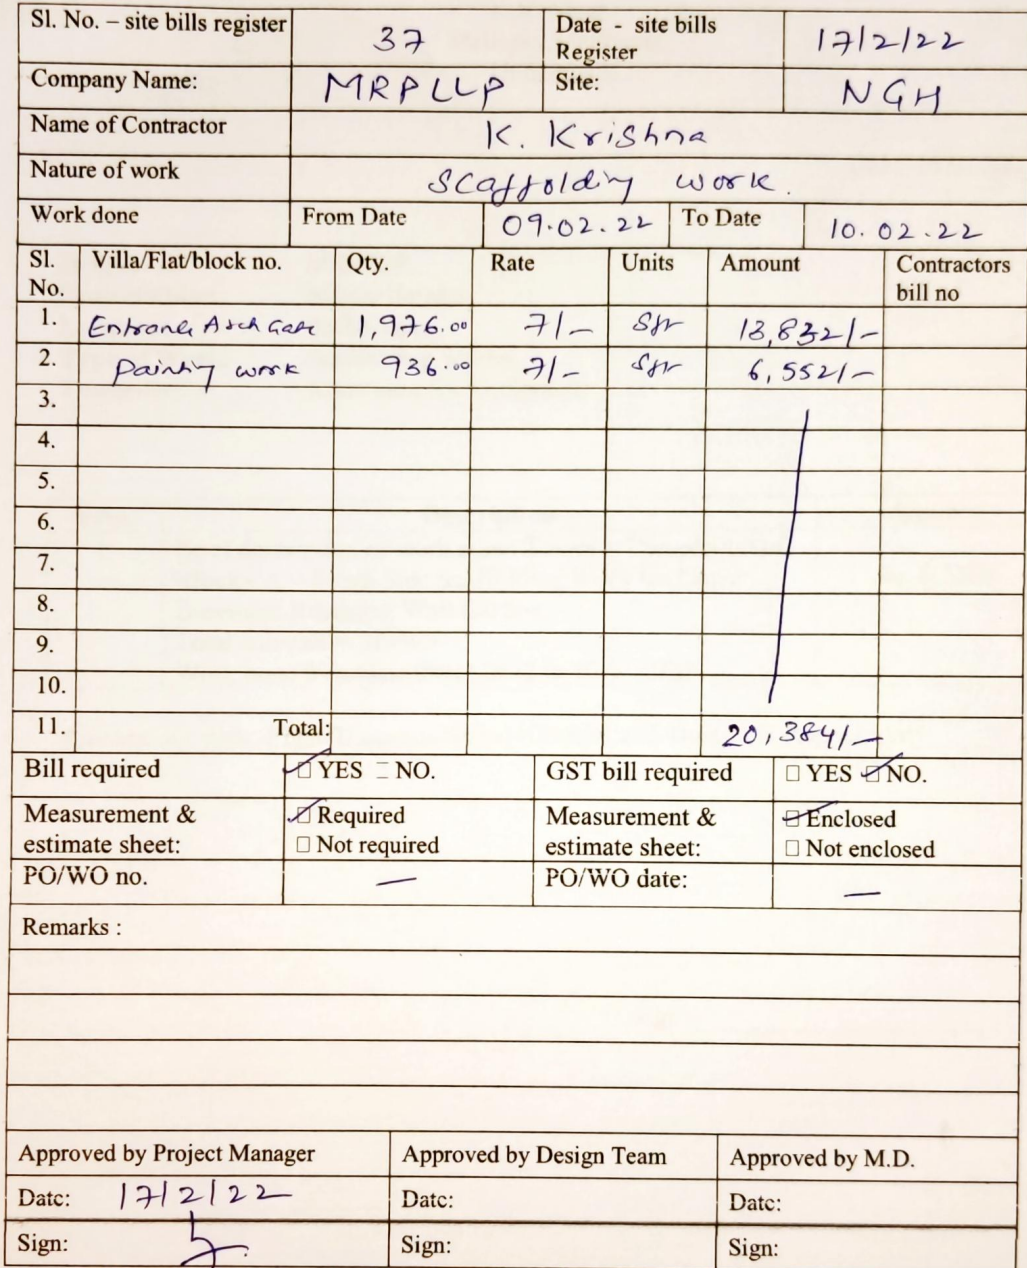 Sl. No. – site bills register 37 Date - site bills Register 17/2/22
Company Name: MRPLLP Site: NGH
Name of Contractor K. Krishna
Nature of work Scaffolding work.
Work done From Date 09.02.22 To Date 10.02.22
Sl. No. Villa/Flat/block no. Qty. Rate Units Amount Contractors bill no
1. Entrance Arch Gate 1,976.00 7/- Sft 13,832/-
2. Painting work 936.00 7/- Sft 6,552/-
3.
4.
5.
6.
7.
8.
9.
10.
11. Total: 20,384/-
Bill required ☑ YES ☐ NO. GST bill required ☐ YES ☑ NO.
Measurement & estimate sheet: ☑ Required ☐ Not required Measurement & estimate sheet: ☑ Enclosed ☐ Not enclosed
PO/WO no. — PO/WO date: —
Remarks :
Approved by Project Manager Approved by Design Team Approved by M.D.
Date: 17/2/22 Date: Date:
Sign: Sign: Sign: